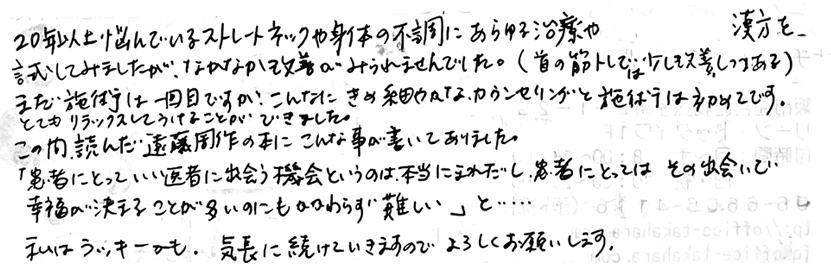 20年以上悩んでいるストレートネックや身体の不調にあらゆる治療や 漢方を
試してみましたが、なかなか改善がみられませんでした。(首の筋トレでは少し改善しつつある)
まだ施術は一回目ですが、こんなにきめ細やかなカウンセリングと施術は初めてです。
とてもリラックスしてうけることができました。
この間、読んだ遠藤周作の本にこんな事が書いてありました。
「患者にとっていい医者に出会う機会というのは、本当にまれだし、患者にとってはその出会いで
幸福が決まることが多いのにもかかわらず難しい」と……
私はラッキーかも。気長に続けていきますのでよろしくお願いします。